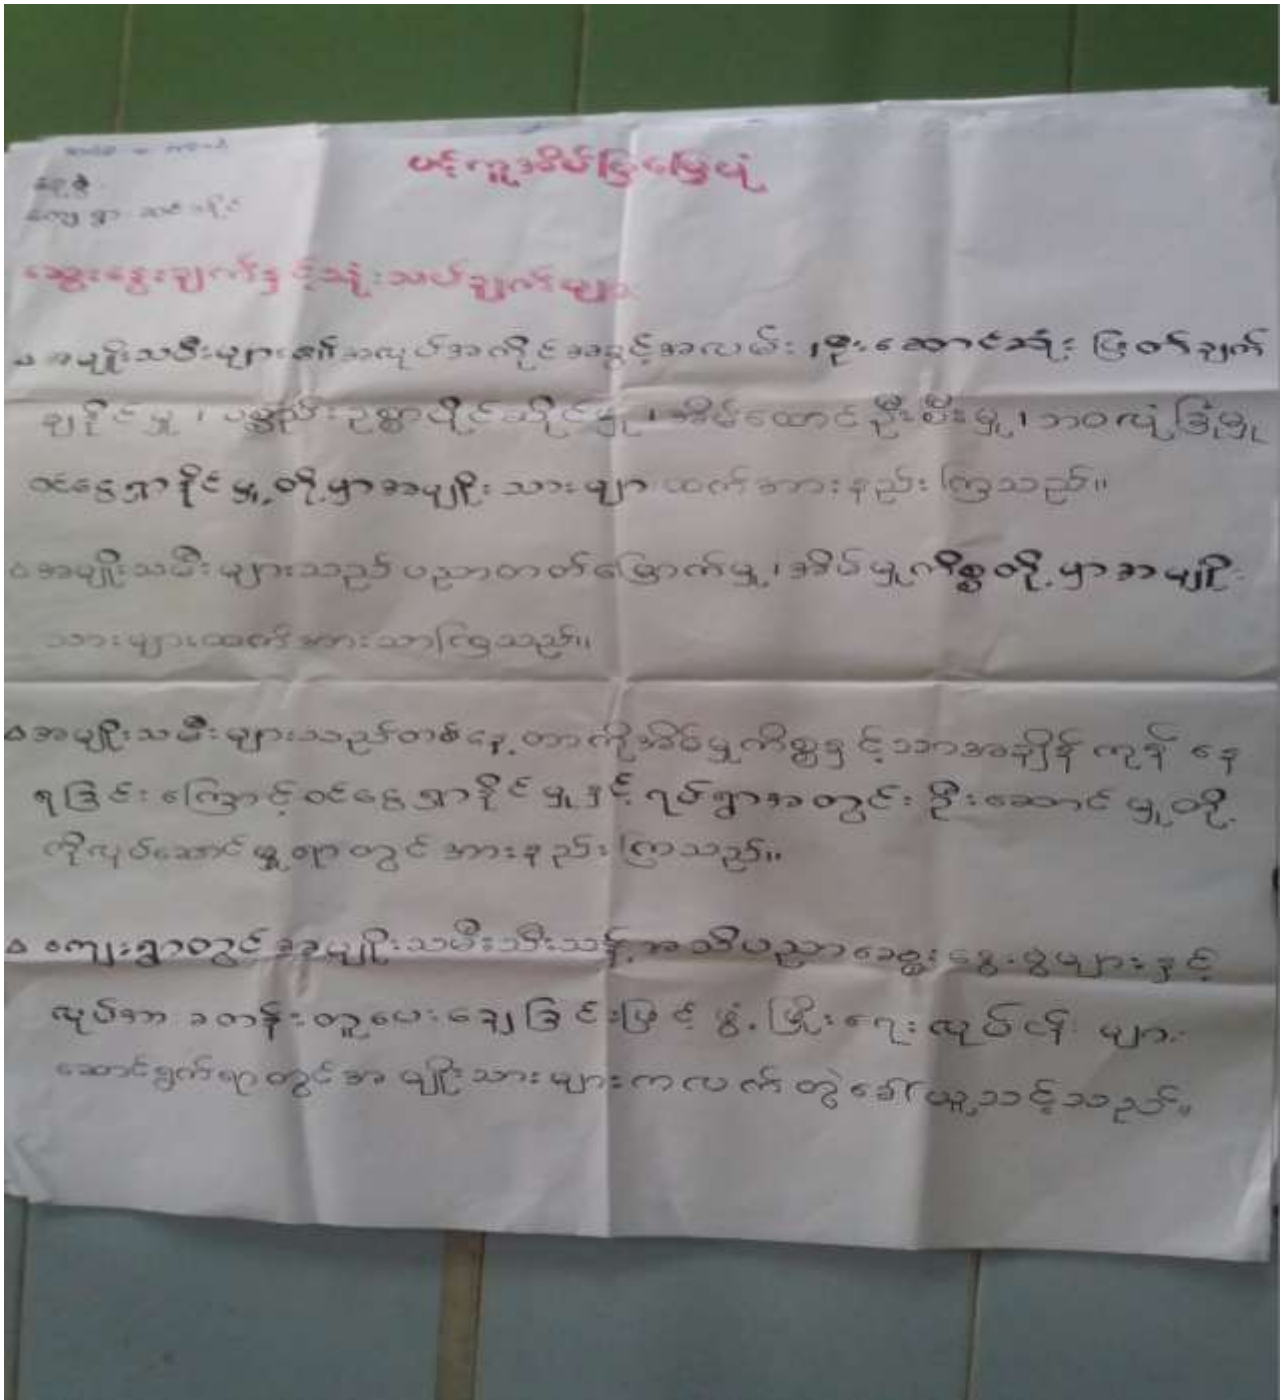 ပင့်ကူအိမ်ပြမြေပုံ
ကျေးရွာ
ဆွေးနွေးချက်နှင့်သုံးသပ်ချက်များ
အမျိုးသမီးများ၏အလုပ်အကိုင်အခွင့်အလမ်း၊ဦးဆောင်ဆုံးဖြတ်ချက်
ချနိုင်မှု၊ပစ္စည်းဥစ္စာပိုင်ဆိုင်မှု၊အိမ်ထောင်ဦးစီးမှု၊ဘဝလုံခြုံမှု
ဝင်ငွေရှာနိုင်မှု့တို့မှာအမျိုးသားများထက်အားနည်းကြသည်။
အမျိုးသမီးများသည်ပညာတတ်မြောက်မှု၊အိမ်မှုကိစ္စတို့မှာအမျိုး
သားများထက်အားသာကြသည်။
အမျိုးသမီးများသည်တစ်နေ့တာကိုအိမ်မှုကိစ္စနှင့်သာအချိန်ကုန်နေ
ရခြင်းကြောင့်ဝင်ငွေရှာနိုင်မှုနှင့်ရပ်ရွာအတွင်းဦးဆောင်မှုတို့
ကိုလုပ်ဆောင်မှု့ရာတွင်အားနည်းကြသည်။
ကျေးရွာတွင်အမျိုးသမီးသီးသန့်အသိပညာဆွေးနွေးပွဲများနှင့်
လုပ်အားခတန်းတူပေးချေခြင်းဖြင့်ဖွံ့ဖြိုးရေးလုပ်ငန်းများ
ဆောင်ရွက်ရာတွင်အမျိုးသားများကလက်တွဲခေါ်ယူသင့်သည်။